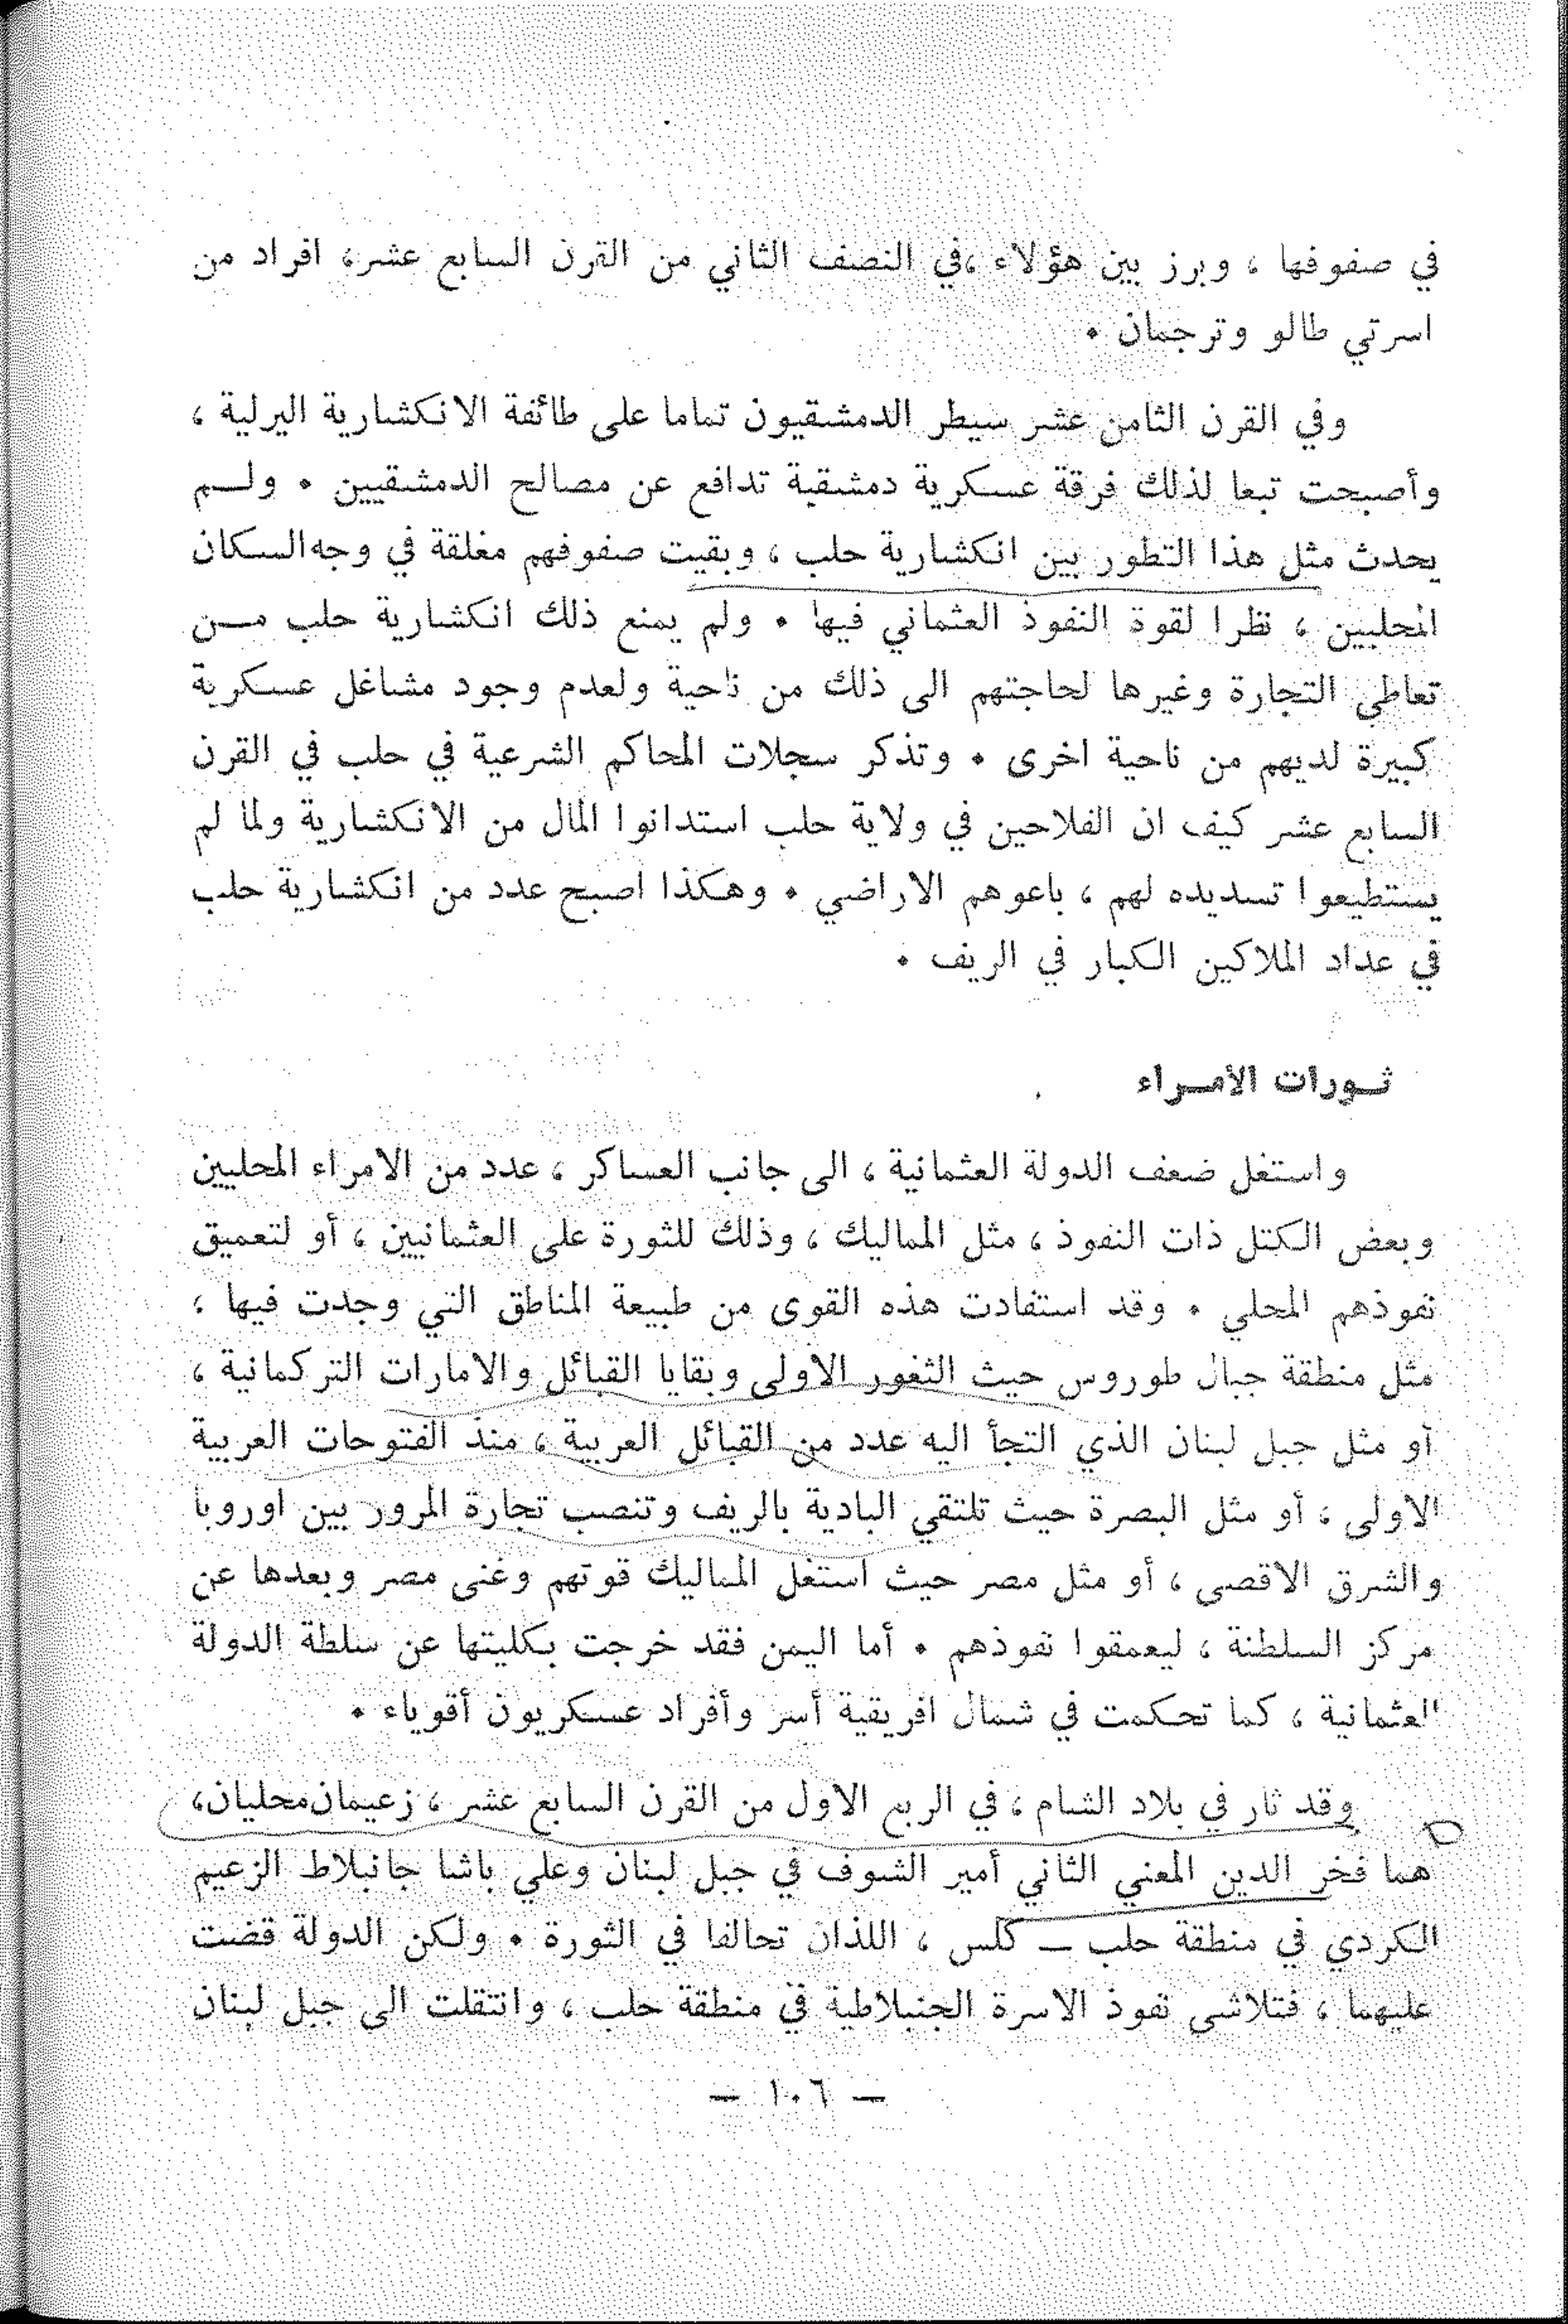 في صفوفها ، وبرز بين هؤلاء ،في النصف الثاني من القرن السابع عشر، افراد من
اسرتي طالو وترجمان .
وفي القرن الثامن عشر سيطر الدمشقيون تماما على طائفة الانكشارية اليرلية ،
وأصبحت تبعا لذلك فرقة عسكرية دمشقية تدافع عن مصالح الدمشقيين . ولـم
يحدث مثل هذا التطور بين انكشارية حلب ، وبقيت صفوفهم مغلقة في وجه السكان
المحليين ، نظرا لقوة النفوذ العثماني فيها . ولم يمنع ذلك انكشارية حلب مـن
تعاطي التجارة وغيرها لحاجتهم الى ذلك من ناحية ولعدم وجود مشاغل عسكرية
كبيرة لديهم من ناحية اخرى . وتذكر سجلات المحاكم الشرعية في حلب في القرن
السابع عشر كيف ان الفلاحين في ولاية حلب استدانوا المال من الانكشارية ولما لم
يستطيعوا تسديده لهم ، باعوهم الاراضي . وهكذا اصبح عدد من انكشارية حلب
في عداد الملاكين الكبار في الريف .
ثـورات الأمـراء
واستغل ضعف الدولة العثمانية ، الى جانب العساكر ، عدد من الامراء المحليين
وبعض الكتل ذات النفوذ ، مثل المماليك ، وذلك للثورة على العثمانيين ، أو لتعميق
نفوذهم المحلي . وقد استفادت هذه القوى من طبيعة المناطق التي وجدت فيها ،
مثل منطقة جبال طوروس حيث الثغور الاولى وبقايا القبائل والامارات التركمانية ،
أو مثل جبل لبنان الذي التجأ اليه عدد من القبائل العربية ، منذ الفتوحات العربية
الاولى ، أو مثل البصرة حيث تلتقي البادية بالريف وتنصب تجارة المرور بين اوروبا
والشرق الاقصى ، أو مثل مصر حيث استغل المماليك قوتهم وغنى مصر وبعدها عن
مركز السلطنة ، ليعمقوا نفوذهم . أما اليمن فقد خرجت بكليتها عن سلطة الدولة
العثمانية ، كما تحكمت في شمال افريقية أسر وأفراد عسكريون أقوياء .
وقد ثار في بلاد الشام ، في الربع الاول من القرن السابع عشر ، زعيمان محليان،
هما فخر الدين المعني الثاني أمير الشوف في جبل لبنان وعلي باشا جانبلاط الزعيم
الكردي في منطقة حلب ــ كلس ، اللذان تحالفا في الثورة . ولكن الدولة قضت
عليهما ، فتلاشى نفوذ الاسرة الجنبلاطية في منطقة حلب ، وانتقلت الى جبل لبنان
— ١٠٦ —